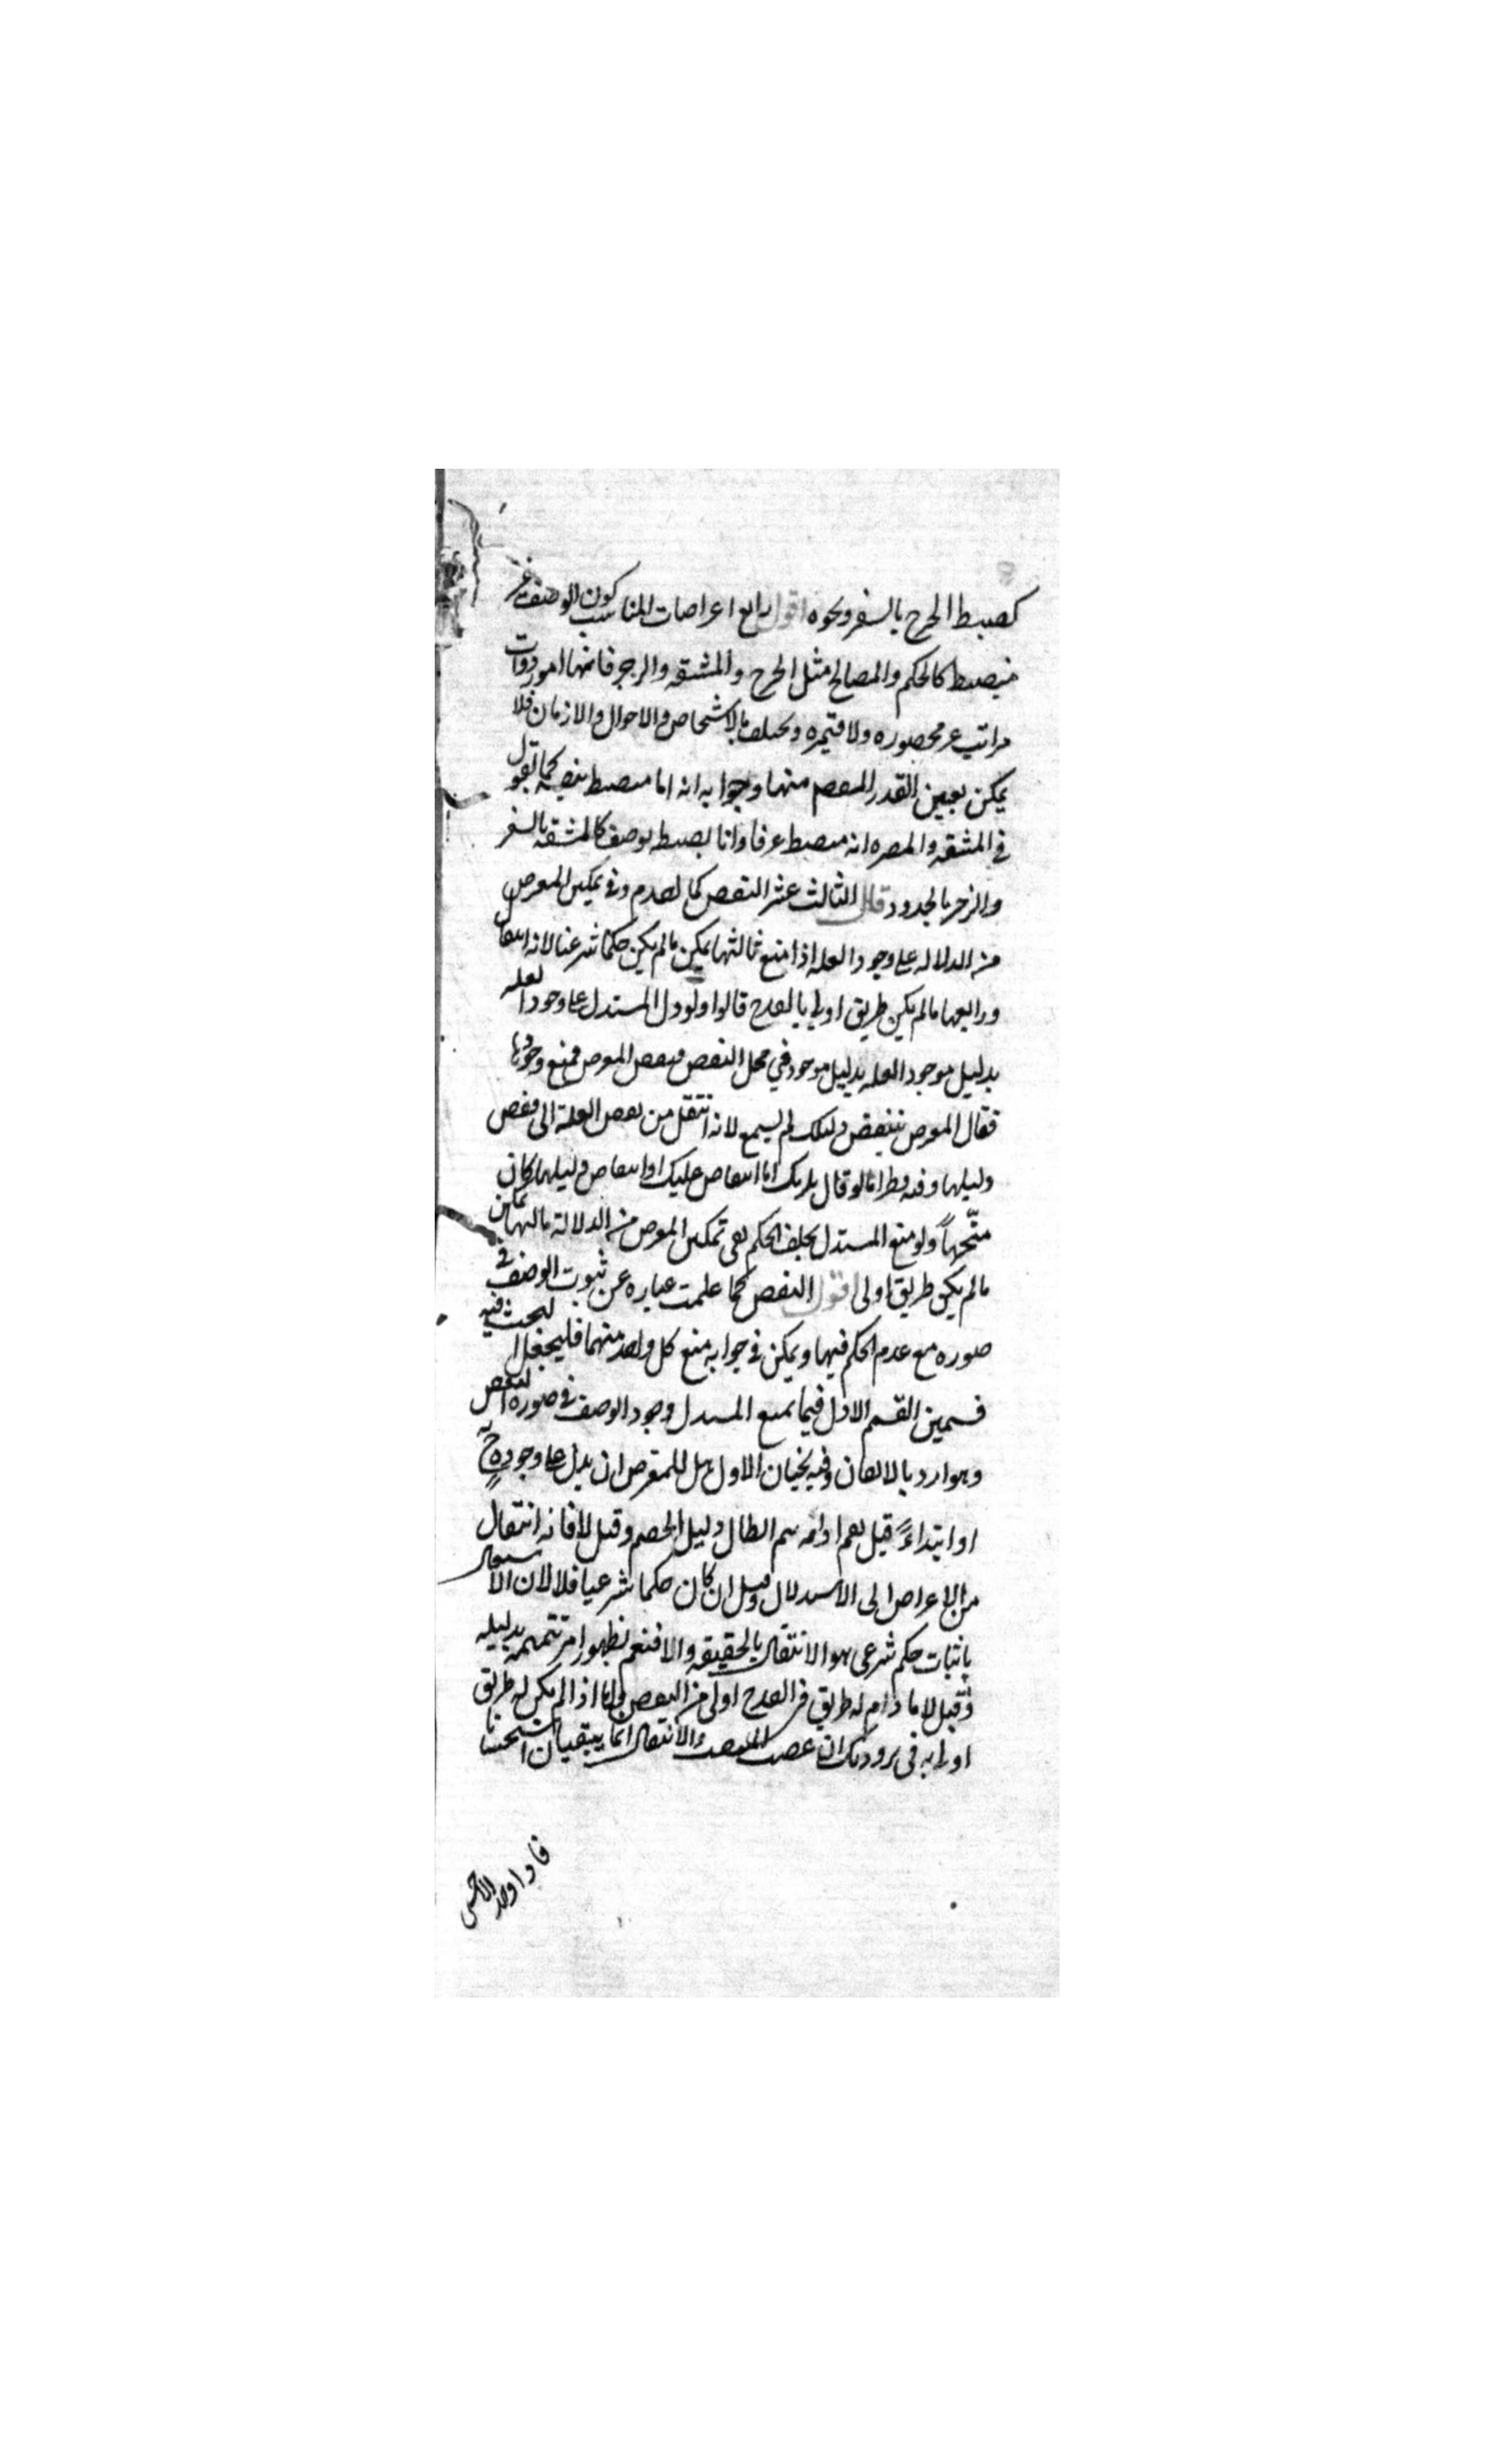 كضبط الحرج بالسفر ونحوه اقول رابع اعراضات المناسب كون الوصف غير
منضبط كالحكم والمصالح مثل الحرج والمشقه والزجر فانها امور ذوات
مراتب غير محصوره ولا متميزه ويختلف بالاشخاص والاحوال والازمان فلا
يمكن تعيين القدر المقصود منها وجوابه انه اما منضبط بنفسه كما تقول
في المشقه والمضره انه منضبط عرفا واما بضبطه بوصف كالمشقه بالسفر
والزجر بالحدود قال الثالث عشر النقض كما تقدم وفي تمكين المعترض
من الدلاله على وجود العله اذا منع ثالثها يمكن ما لم يكن حكما شرعيا لانه انتقال
ورابعها ما لم يكن طريق اولى بالقدح قالوا ولو دل المستدل على وجود العله
بدليل موجود العله بدليل موجود في محل النقض فنقض المعترض فمنع وجودها
فقال المعترض ينتقض دليلك لم يسمع لانه انتقل من نقض العلة الى نقض
دليلها وفيه نظر اما لو قال يلزمك اما انتقاض علتك او انتقاض دليلها كان
متّجهاً ولو منع المستدل تخلف الحكم ففي تمكين المعترض من الدلالة ثالثها يمكن
ما لم يكن طريق اولى اقول النقض كما علمت عباره عن ثبوت الوصف في
صوره مع عدم الحكم فيها ويمكن في جوابه منع كل واحد منهما فليجعل البحث فيه
قسمين القسم الاول فيما يمنع المستدل وجود الوصف في صورة النقض
وهو وارد بالاتفان وفيه بحثان الاول هل للمعترض ان يدل على وجوده ح به
او ابتداءً قيل نعم اذ به يتم ابطال دليل الخصم وقيل لا فانه انتقال
من الاعتراض الى الاستدلال وقيل ان كان حكما شرعيا فلا لان الاشتغال
باثبات حكم شرعي هو الانتقال بالحقيقه والا فنعم لظهور امر تتميمه بدليله
وقيل لا ما دام له طريق في القدح اولى من النقض واما اذا لم يكن له طريق
اولى به في ذلك ان غصب المنصب والانتقال انما ينفيان استحسانا
فاذا وجد الاحسن